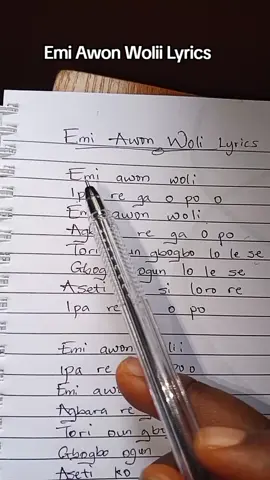 Emi Awon Wolii Lyrics
Emi Awon Woli Lyrics
Emi awon woli
Ipa re ga o po o
Emi awon woli
Agbara re ga o po
Tori oun gbogbo lo le se
Gbogbo ogun lo le se
Aseti si loro re
Ipa re o po
Emi awon
Ipa re o
Emi
Agbara re
Tori oun
Gbogbo ogun
Aseti ko